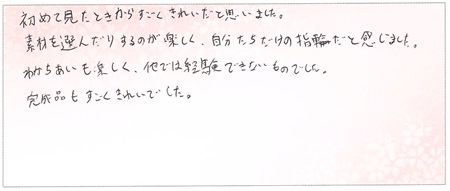 初めて見たときからすごくきれいだと思いました。
素材を選んだりするのが楽しく、自分たちだけの指輪だと感じました。
わかちあいも楽しく、他では経験できないものでした。
完成品もすごくきれいでした。